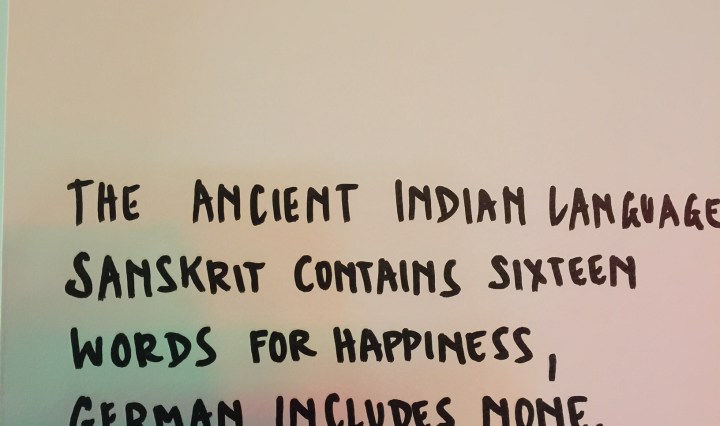 THE ANCIENT INDIAN LANGUAGE
SANSKRIT CONTAINS SIXTEEN
WORDS FOR HAPPINESS,
GERMAN INCLUDES NONE.